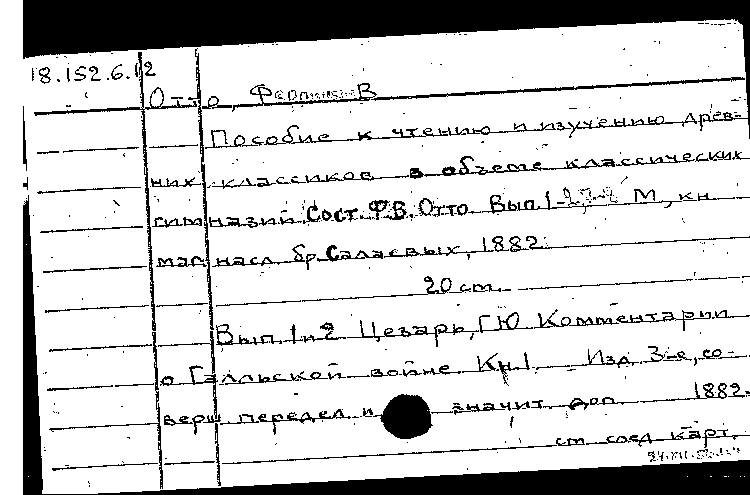 18.152.6.12
Отто, В
Пособие к чтению и изучению древ-
них классиков в объеме классических
гимназий. Сост. Ф.В. Отто. Вып. 1- М., кн.
маг. насл. бр. Салаевых, 1882.
20 см.
Вып. 1 и 2 Цезарь, Г.Ю. Комментарии
о Галльской войне. Кн. 1. Изд. 3-е, со-
верш. передел. и значит. доп. 1882.
см. соед. карт.